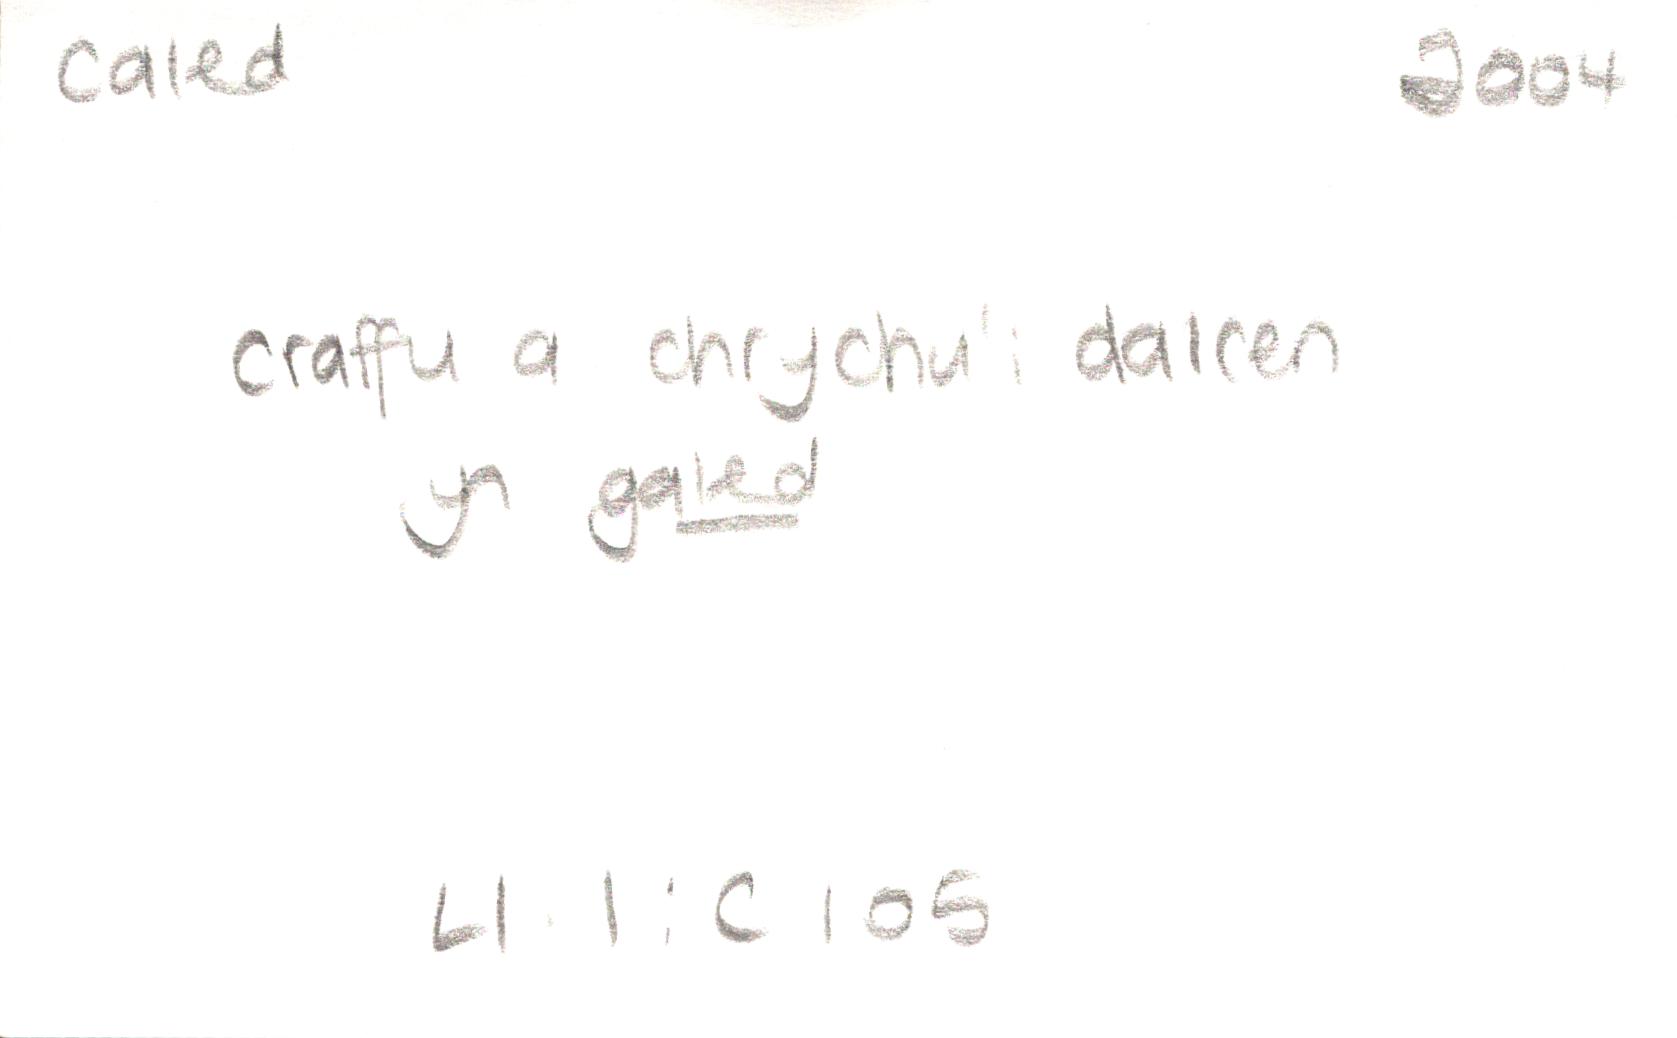 caled 2004
craffu a chrychu'i dalcen
yn galed
Ll. 1 : C 105